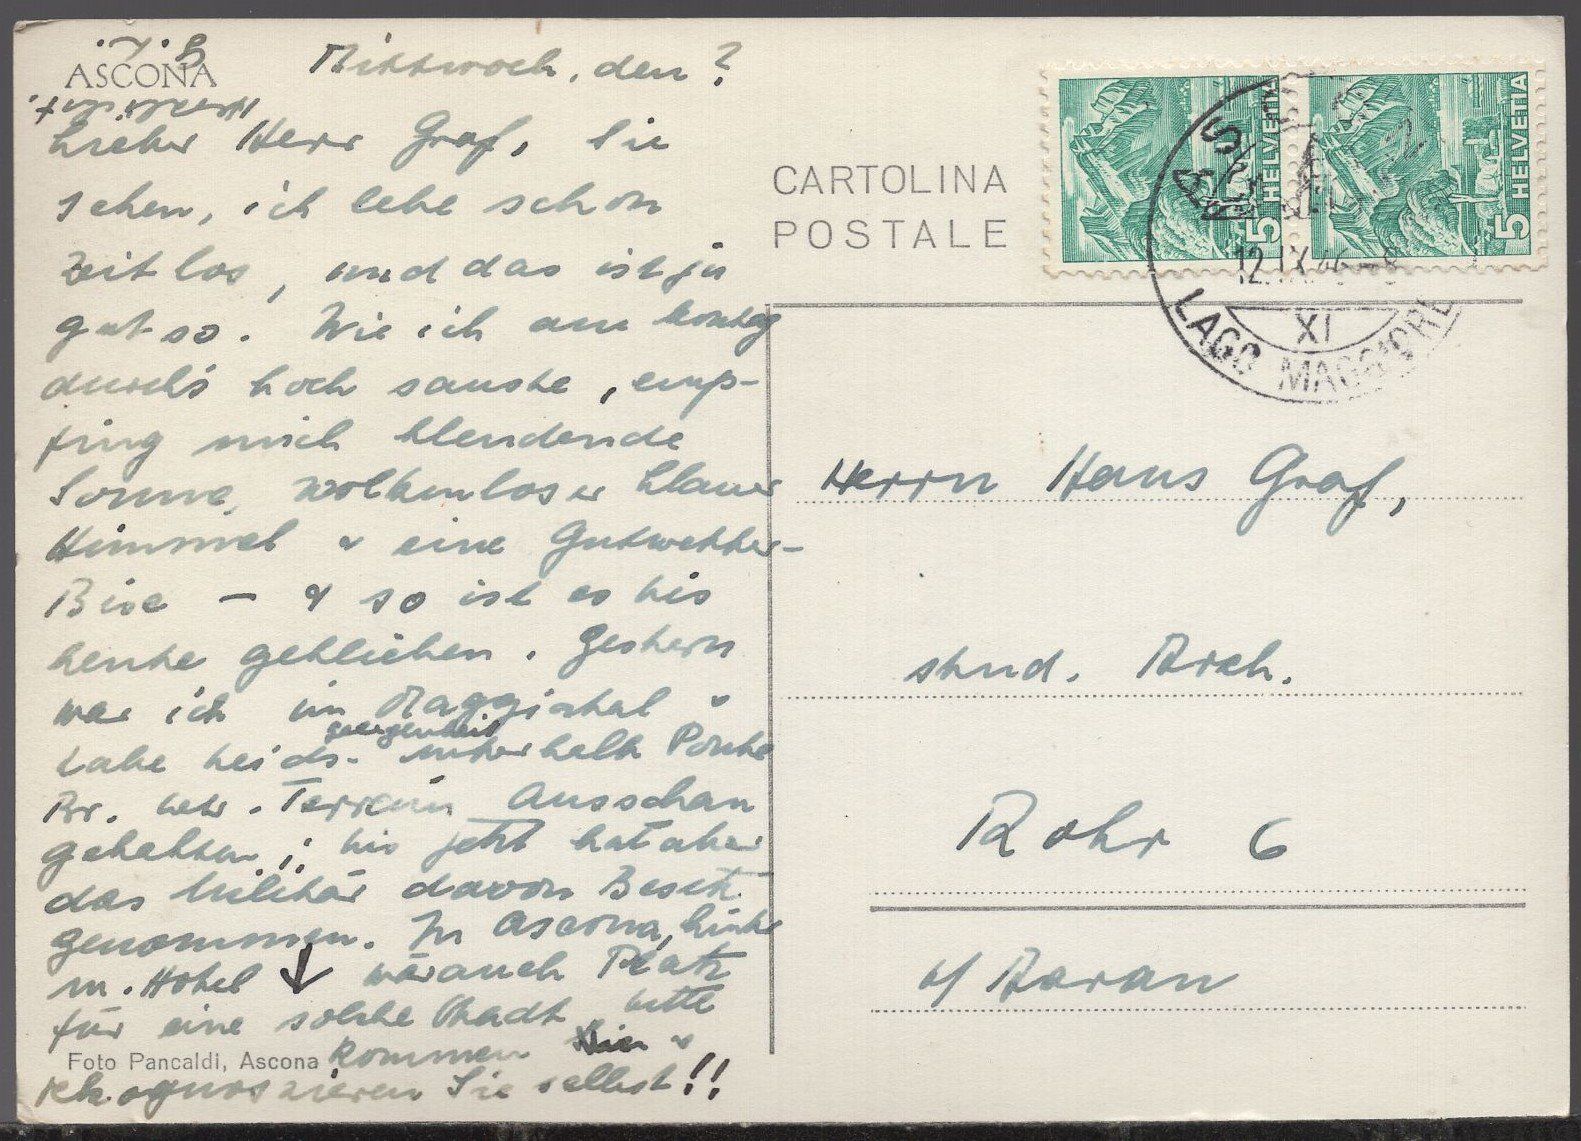 ASCONA
Mittwoch, den ?
Lieber Herr Graf, Sie
sehen, ich lebe schon
zeitlos, und das ist ja
gut so. Wie ich am
durch's Loch sauste, emp-
fing mich blendende
Sonne, wolkenloser blauer
Himmel & eine Gutwetter-
Bise – & so ist es bis
heute geblieben. Gestern
war ich im Maggiatal &
habe beids. unterhalb Ponte
Br. betr. Terrain Ausschau
gehalten; bis jetzt hat aber
das Militär davon Besitz
genommen. In Ascona, hinter
m. Hotel ↓ wär auch Platz
für eine solche Stadt, bitte
kommen Sie &
rekognoszieren Sie selbst!!
Foto Pancaldi, Ascona
CARTOLINA
POSTALE
5 HELVETIA
5 HELVETIA
12.IX.46
XI
LAGO MAGGIORE
Herrn Hans Graf,
stud. Arch.
Rohr 6
b/ Aarau